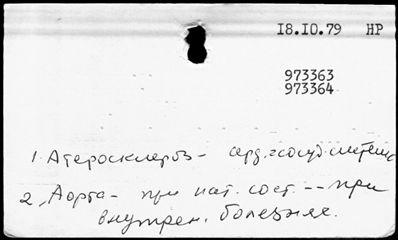 18.10.79 НР
973363
973364
1. Атеросклероз - серд.-сосуд. система
2, Аорта - при пат. сост -- при
внутрен. болезнях.